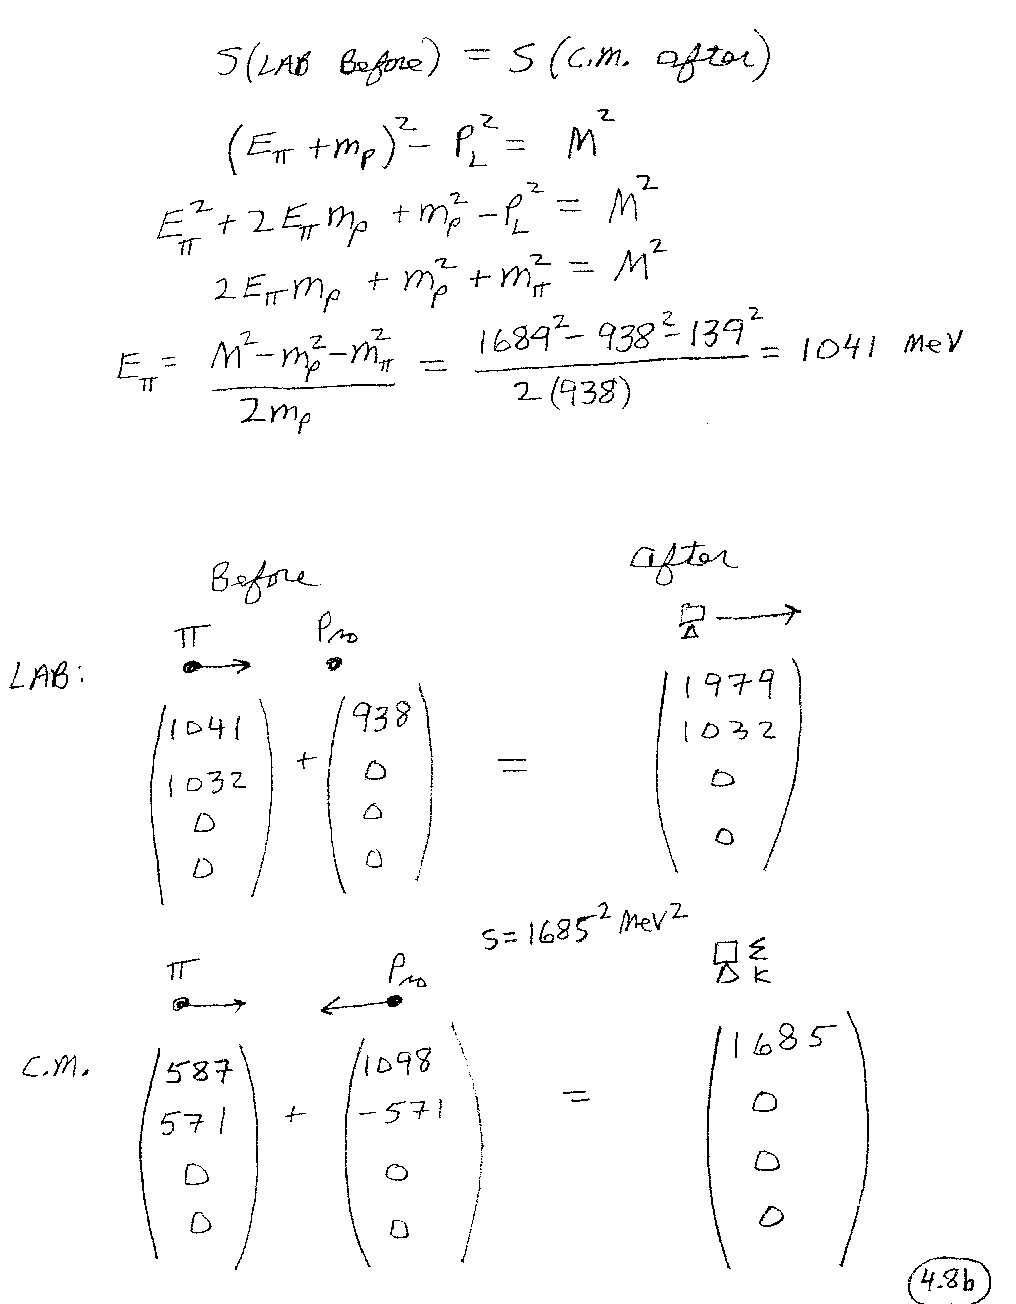 S(LAB Before) = S(C.M. after)
(E_π + m_p)² - P_L² = M²
E_π² + 2E_π m_p + m_p² - P_L² = M²
2E_π m_p + m_p² + m_π² = M²
E_π = (M² - m_p² - m_π²)/(2m_p) = (1689² - 938² - 139²)/(2(938)) = 1041 MeV
Before after
π Pro
LAB:
(1041 1032 0 0) + (938 0 0 0) = (1979 1032 0 0)
S = 1685² MeV²
π Pro Σ K
C.M. (587 571 0 0) + (1098 -571 0 0) = (1685 0 0 0)
4.8b